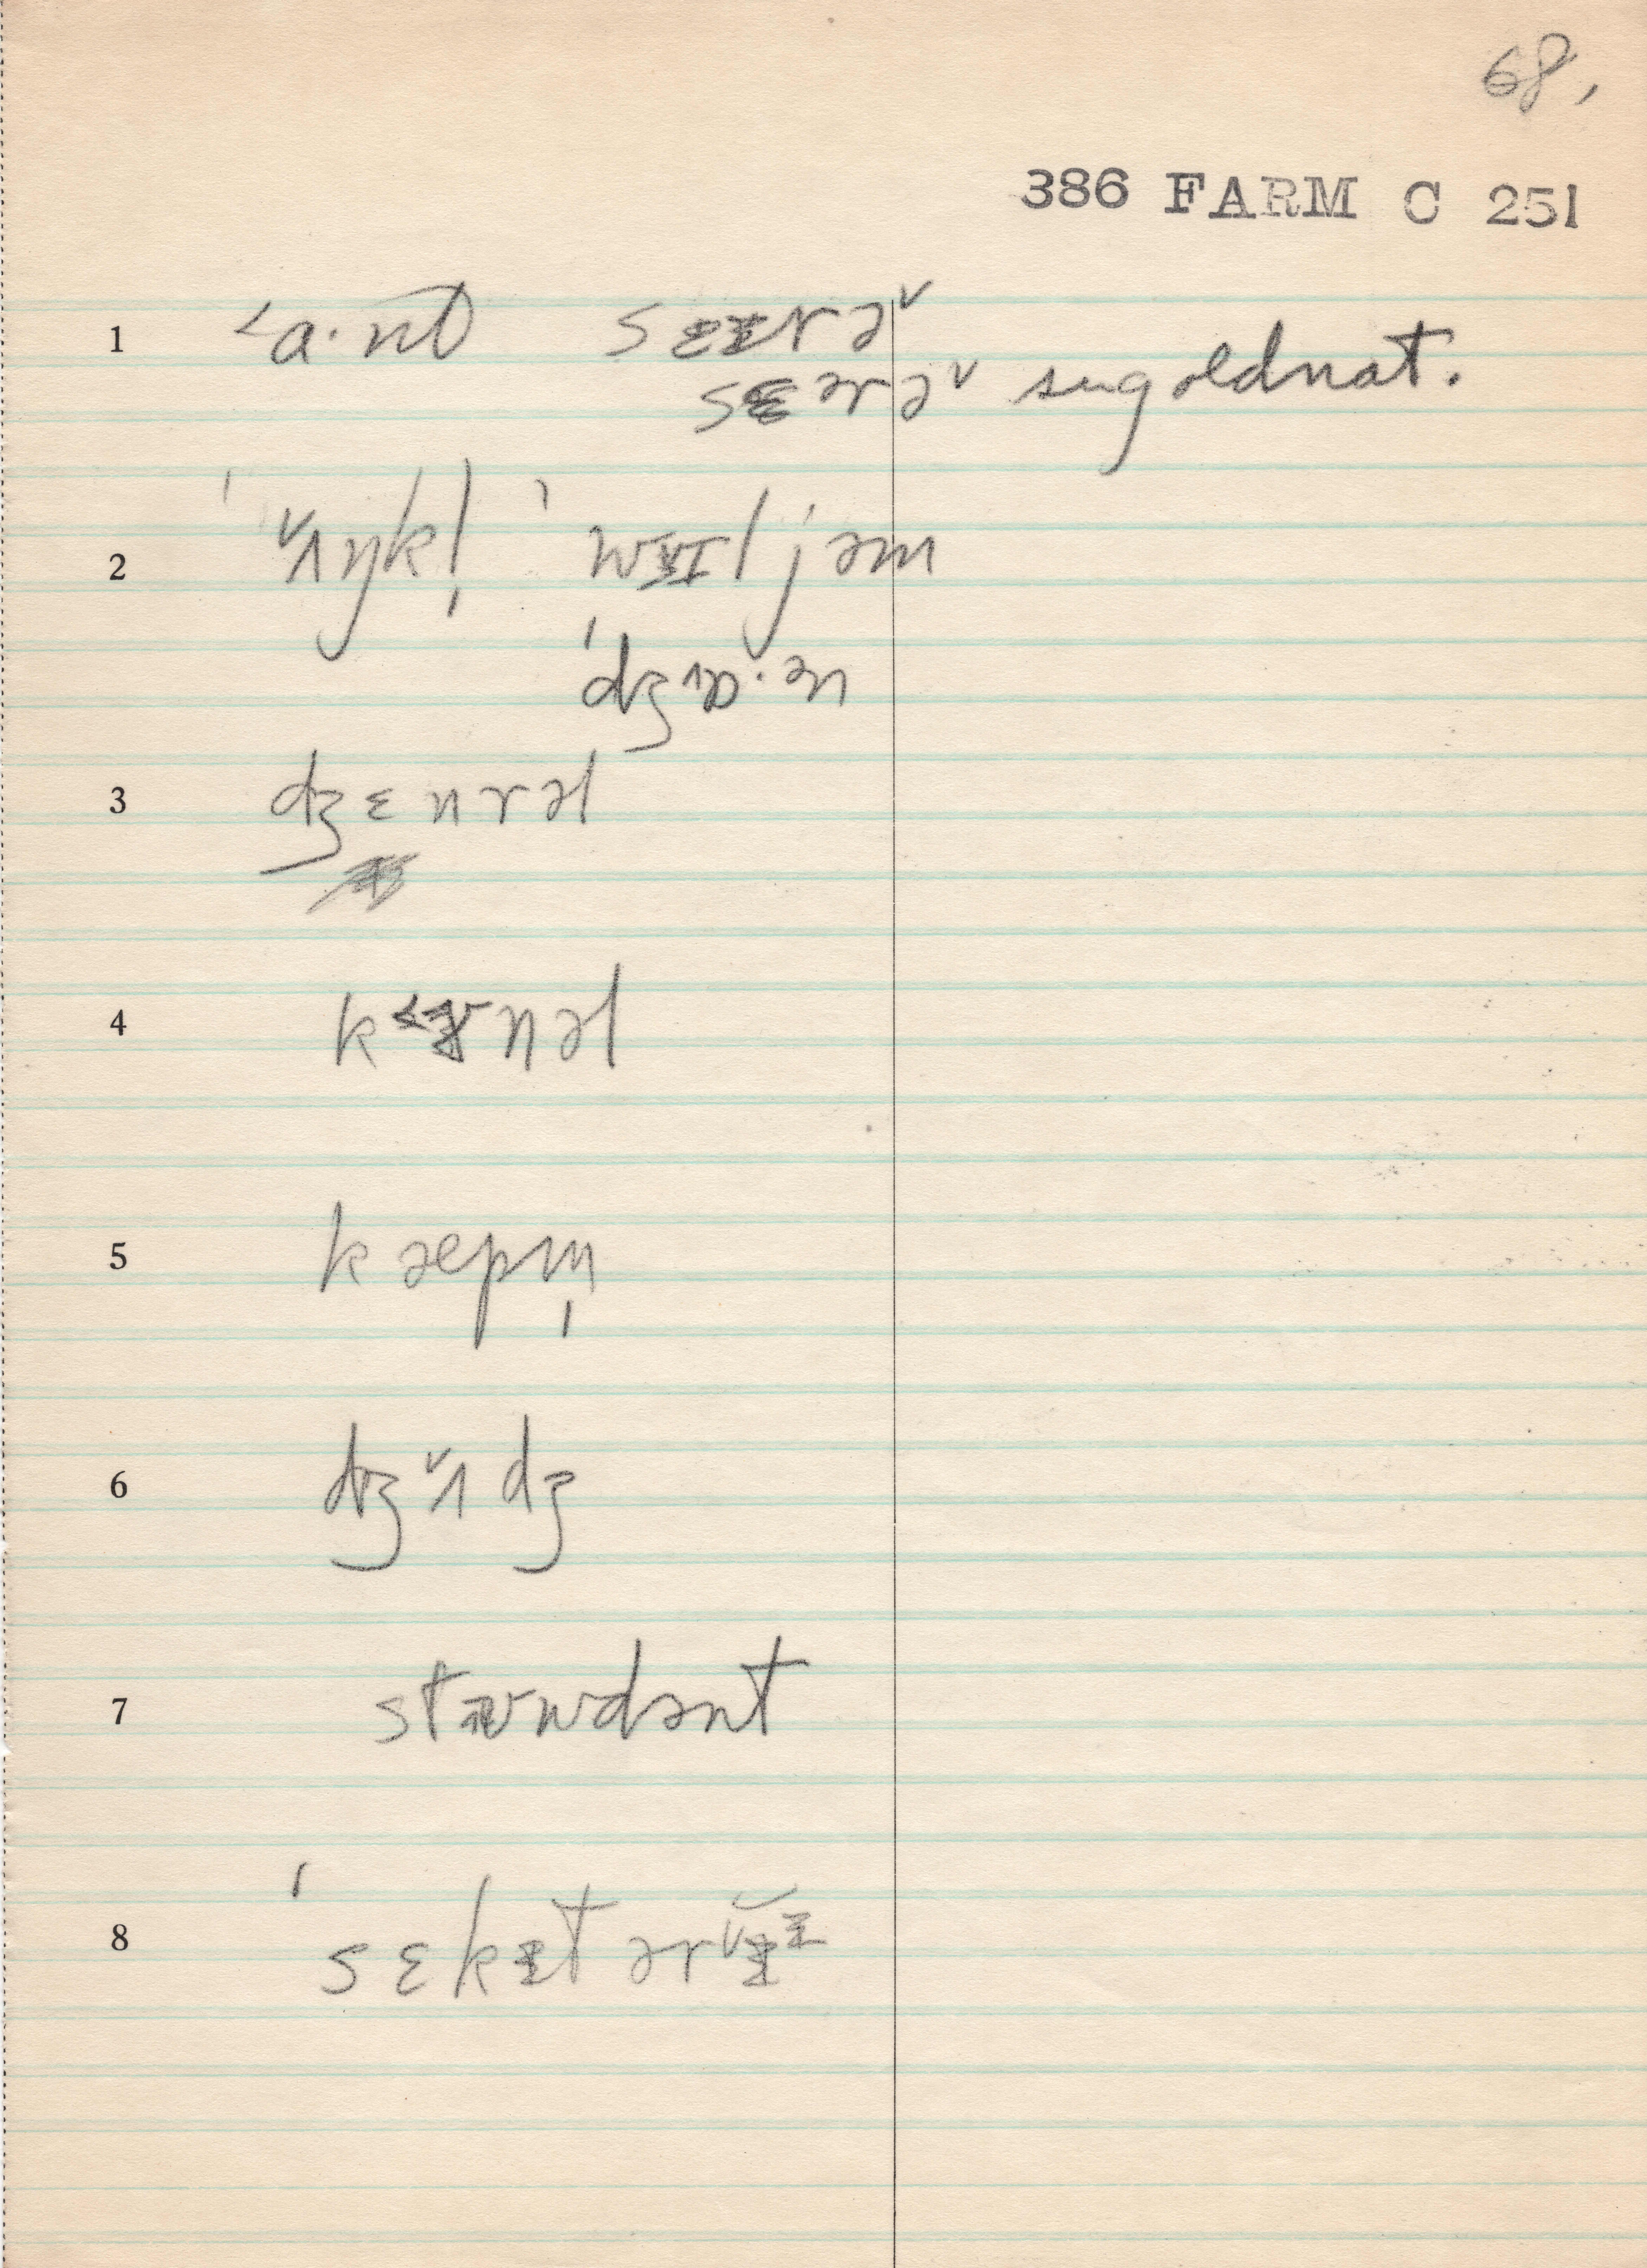 68,
386 FARM C 251
1 ˂a·nt sɛɪrə˅
sɛərə˅ sug old nat.
2 ˈ˅ʌŋkl̩ ˈwɪljəm
ˈdʒ˄ɒ·ən
3 dʒɛnrəl
4 nəl
5 kæpm̩
6 dʒ˅ʌdʒ
7 dənt
8 ˈsɛkɪtərɪ